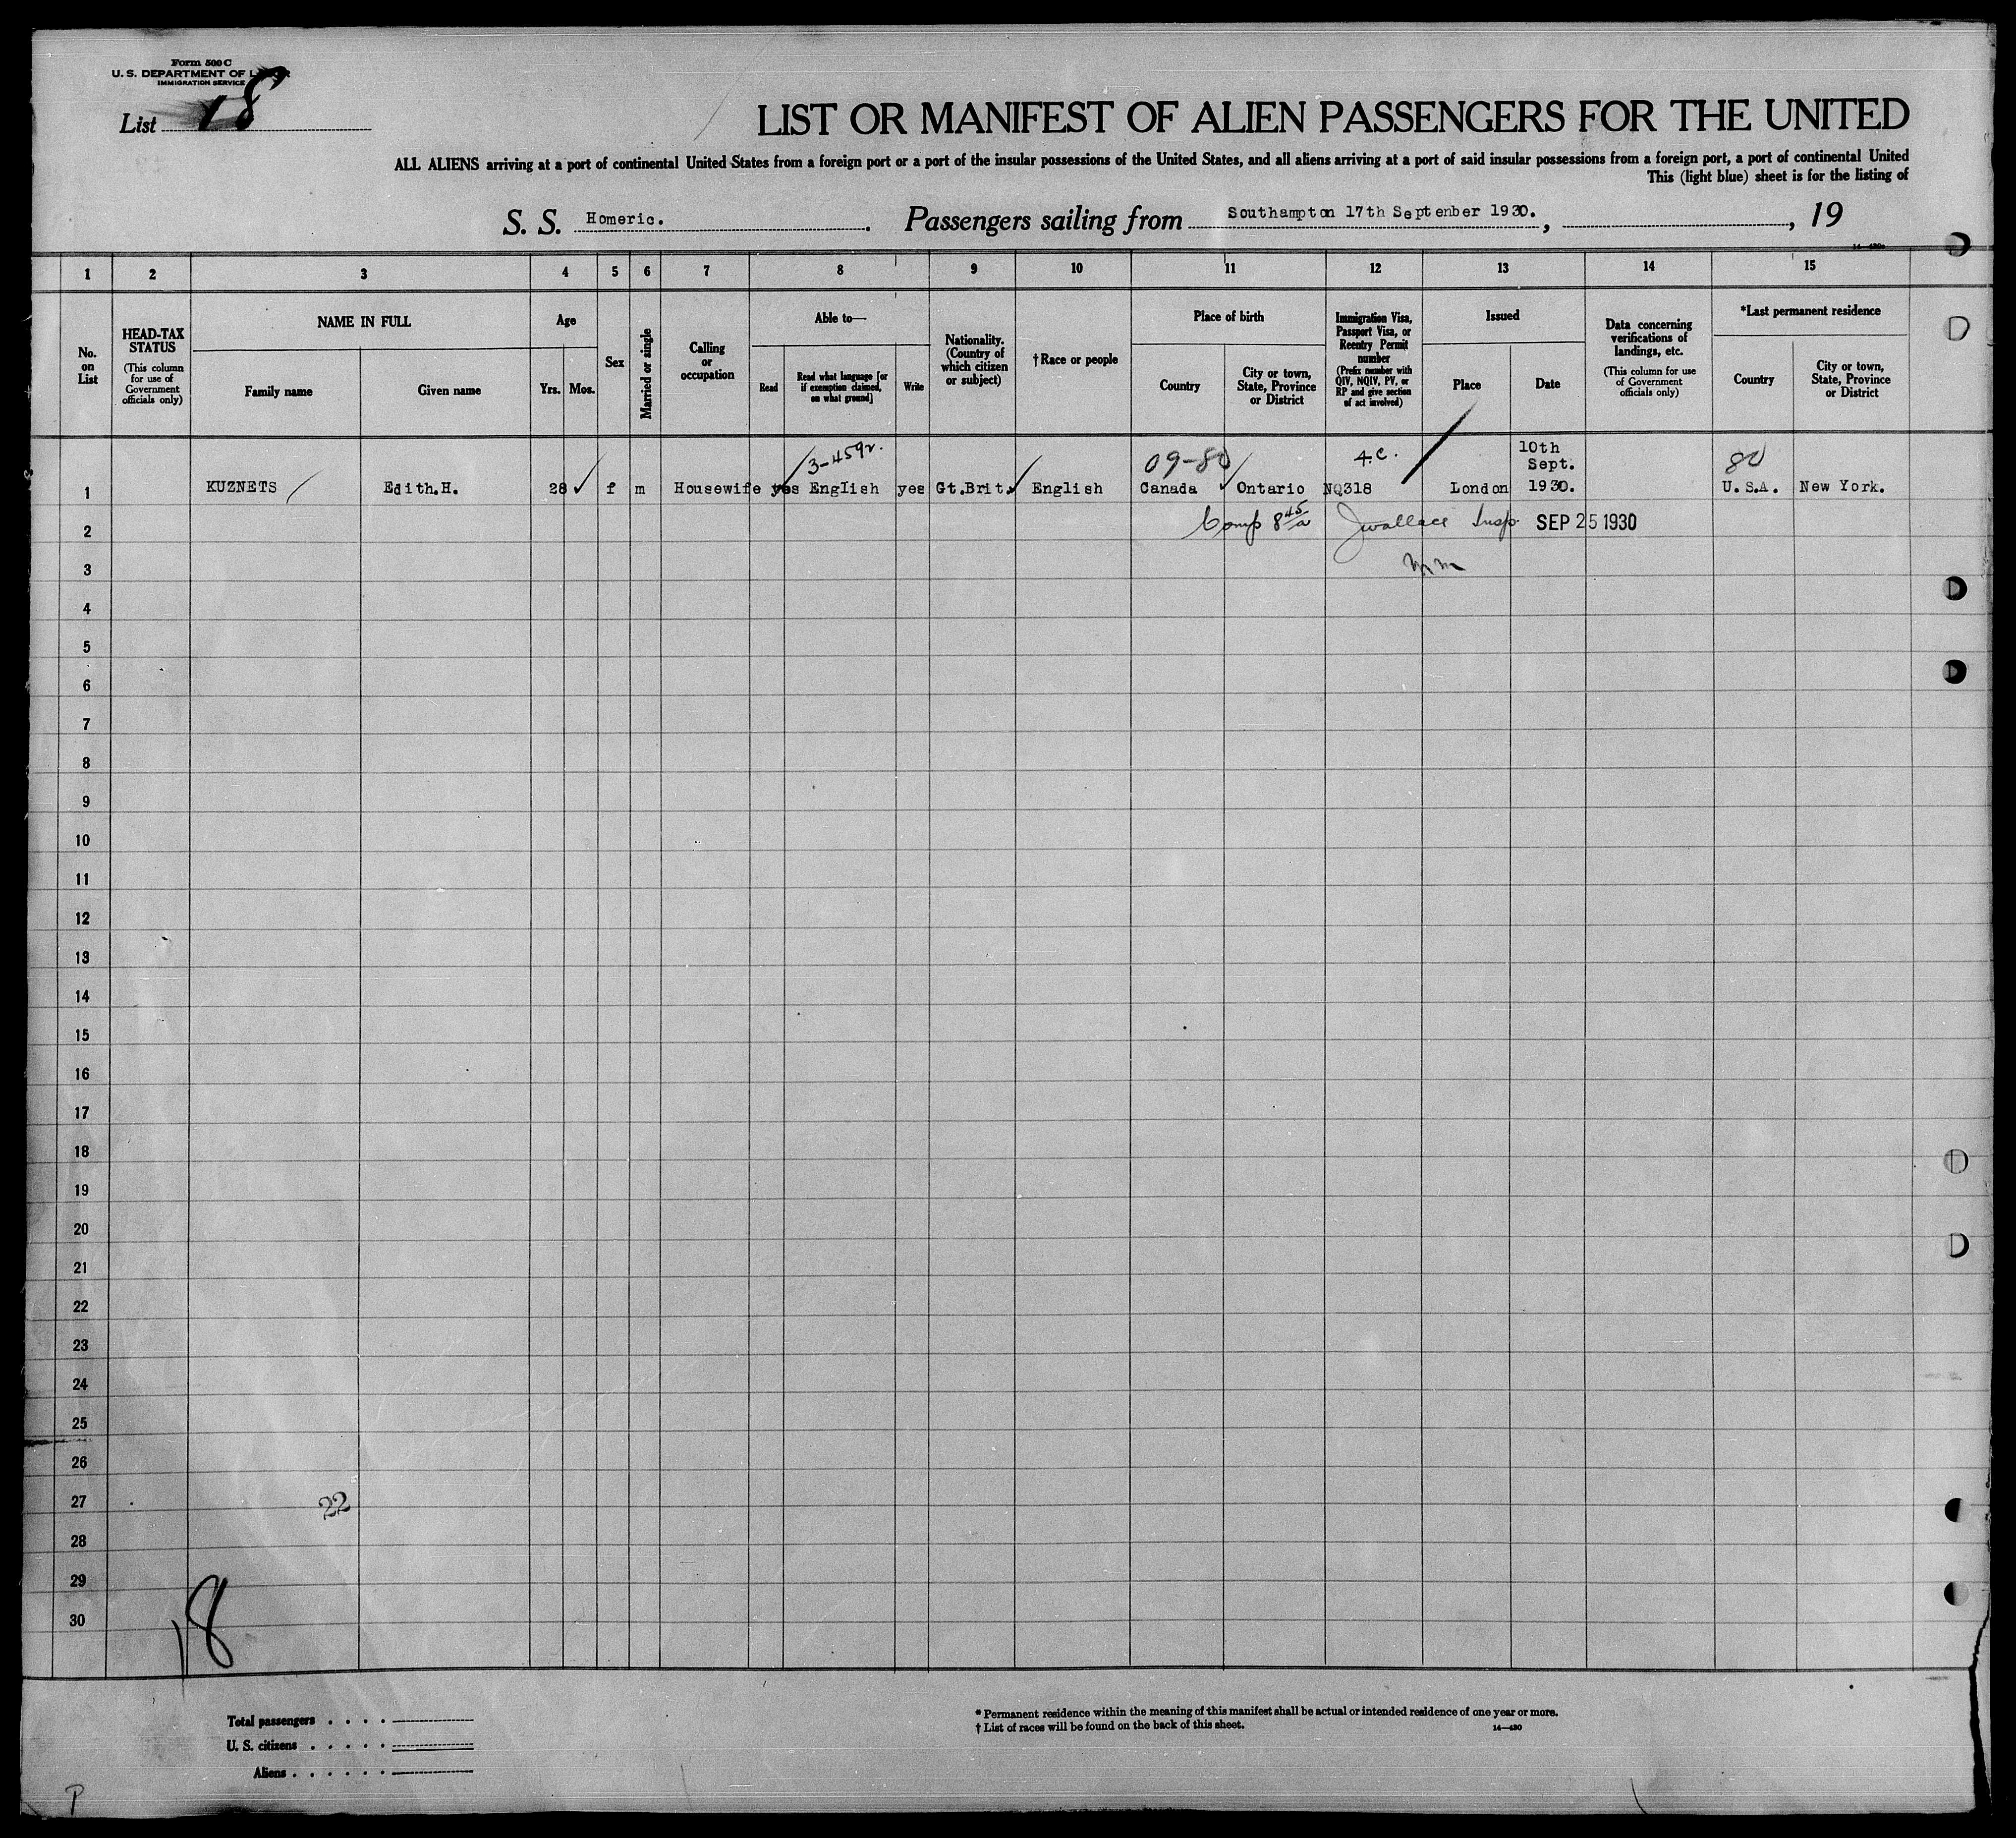 Form 500 C
U. S. DEPARTMENT OF LABOR
IMMIGRATION SERVICE
List 18
LIST OR MANIFEST OF ALIEN PASSENGERS FOR THE UNITED
ALL ALIENS arriving at a port of continental United States from a foreign port or a port of the insular possessions of the United States, and all aliens arriving at a port of said insular possessions from a foreign port, a port of continental United
This (light blue) sheet is for the listing of
S. S. Homeric. Passengers sailing from Southampton 17th September 1930. , , 19
1 2 3 4 5 6 7 8 9 10 11 12 13 14 15
No. on List
HEAD-TAX STATUS
(This column for use of Government officials only)
NAME IN FULL
Family name Given name
Age
Yrs. Mos.
Sex
Married or single
Calling or occupation
Able to—
Read Read what language [or if exemption claimed, on what ground] Write
Nationality. (Country of which citizen or subject)
†Race or people
Place of birth
Country City or town, State, Province or District
Immigration Visa, Passport Visa, or Reentry Permit number
(Prefix number with QIV, NQIV, PV, or RP and give section of act involved)
Issued
Place Date
Data concerning verifications of landings, etc.
(This column for use of Government officials only)
*Last permanent residence
Country City or town, State, Province or District
3-459r. 09-80 4.c. 10th Sept. 80
1 KUZNETS Edith.H. 28 f m Housewife yes English yes Gt.Brit. English Canada Ontario NQ318 London 1930. U.S.A. New York.
2 Comp 8 45/a Jwallace Insp. SEP 25 1930
3
4
5
6
7
8
9
10
11
12
13
14
15
16
17
18
19
20
21
22
23
24
25
26
27 22
28
29
30
18
Total passengers . . . .
U. S. citizens . . . . .
Aliens . . . . . .
* Permanent residence within the meaning of this manifest shall be actual or intended residence of one year or more.
† List of races will be found on the back of this sheet. 14—430
P